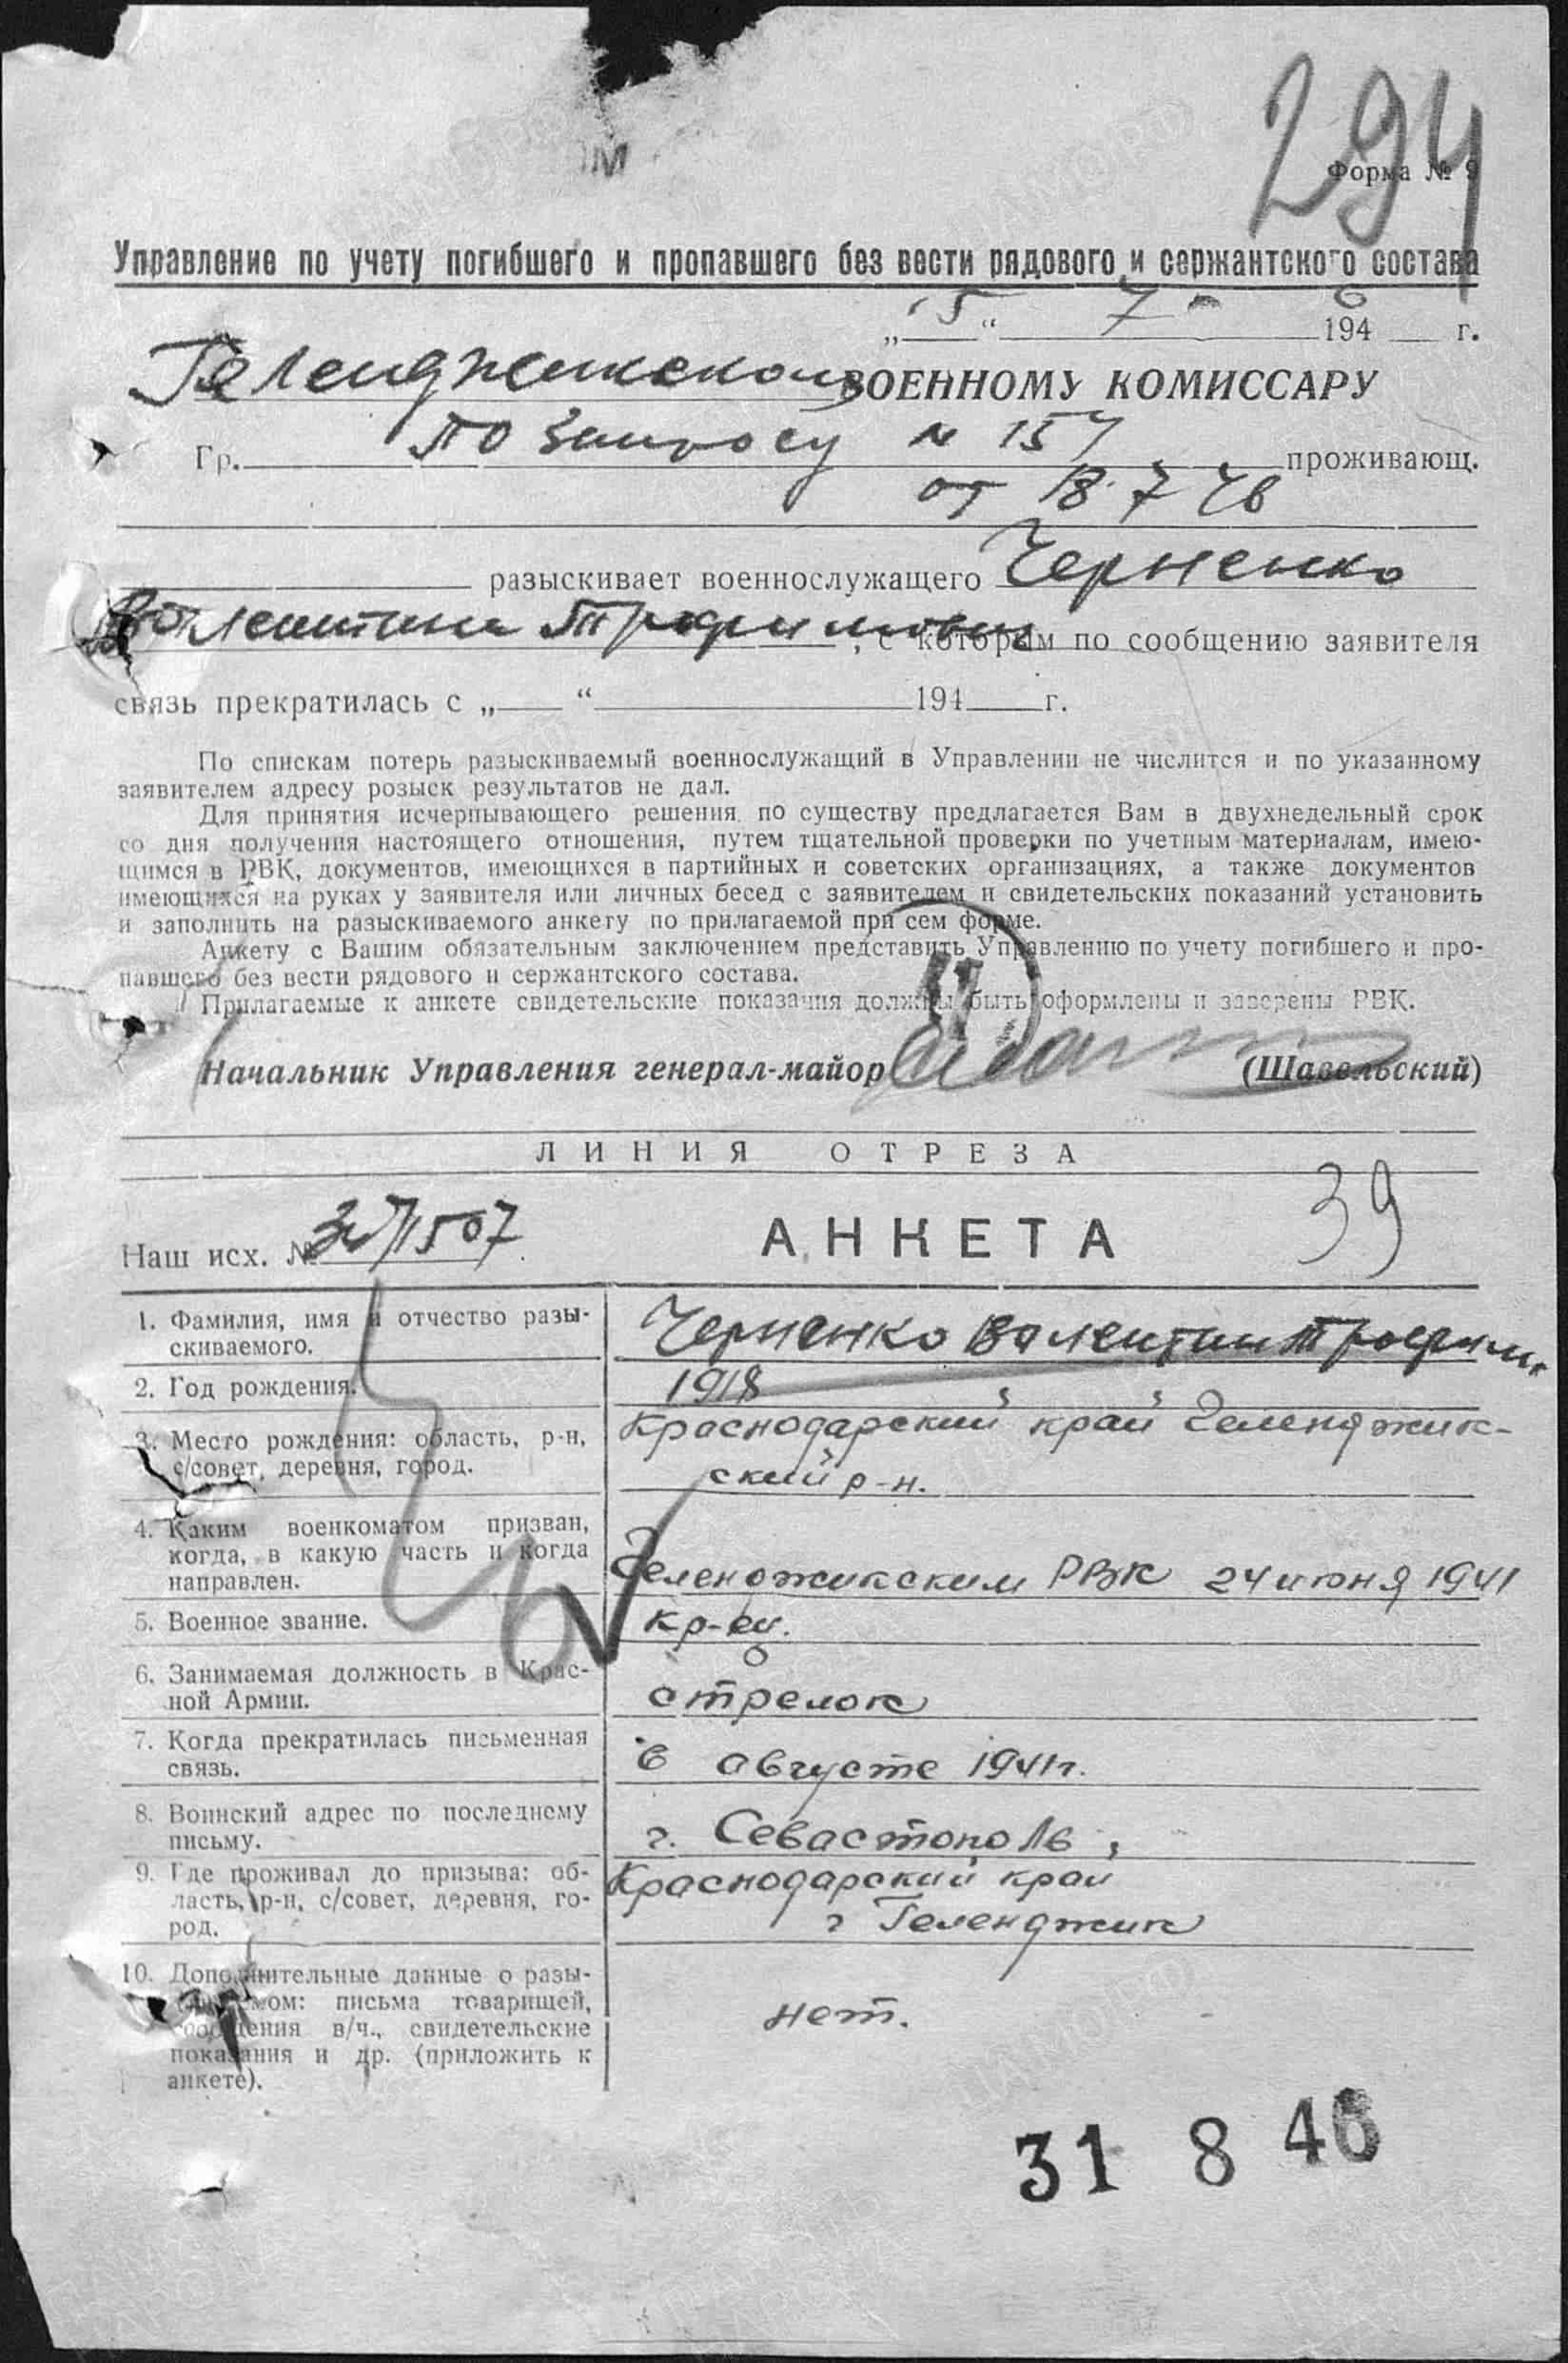 294
Форма № 9
Управление по учету погибшего и пропавшего без вести рядового и сержантского состава
„5“ 7 - 1946 г.
Геленджикском ВОЕННОМУ КОМИССАРУ
Гр. по запросу № 157 проживающ.
от 18.7 46
разыскивает военнослужащего Черненко
Валентина Трофимович, с которым по сообщению заявителя
связь прекратилась с „ “ 194 г.
По спискам потерь разыскиваемый военнослужащий в Управлении не числится и по указанному
заявителем адресу розыск результатов не дал.
Для принятия исчерпывающего решения по существу предлагается Вам в двухнедельный срок
со дня получения настоящего отношения, путем тщательной проверки по учетным материалам, имею-
щимся в РВК, документов, имеющихся в партийных и советских организациях, а также документов
имеющихся на руках у заявителя или личных бесед с заявителем и свидетельских показаний установить
и заполнить на разыскиваемого анкету по прилагаемой при сем форме.
Анкету с Вашим обязательным заключением представить Управлению по учету погибшего и про-
павшего без вести рядового и сержантского состава.
Прилагаемые к анкете свидетельские показания должны быть оформлены и заверены РВК.
Начальник Управления генерал-майор (Шавельский)
ЛИНИЯ ОТРЕЗА
39
Наш исх. № /1507 АНКЕТА
1. Фамилия, имя и отчество разы-
скиваемого.
Черненко Валентин Трофим.
2. Год рождения.
1918
3. Место рождения: область, р-н,
с/совет, деревня, город.
Краснодарский край Геленджик-
ский р-н.
4. Каким военкоматом призван,
когда, в какую часть и когда
направлен.
Геленджикским РВК 24 июня 1941
5. Военное звание.
кр-ец.
6. Занимаемая должность в Крас-
ной Армии.
стрелок
7. Когда прекратилась письменная
связь.
в августе 1941г.
8. Воинский адрес по последнему
письму.
г. Севастополь,
9. Где проживал до призыва: об-
ласть, р-н, с/совет, деревня, го-
род.
Краснодарский край
г Геленджик
10. Дополнительные данные о разы-
мом: письма товарищей,
в/ч., свидетельские
показания и др. (приложить к
анкете).
нет.
31 8 46